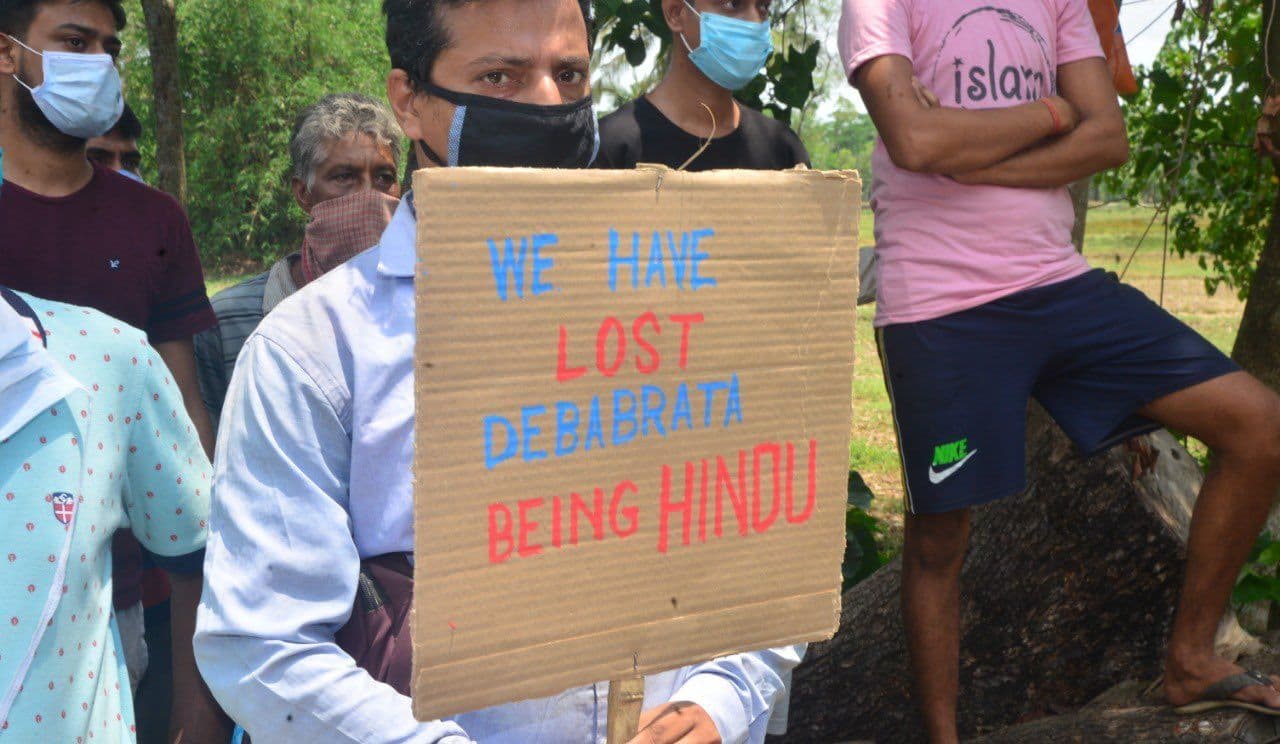 WE HAVE
LOST
DEBABRATA
BEING HINDU
NIKE